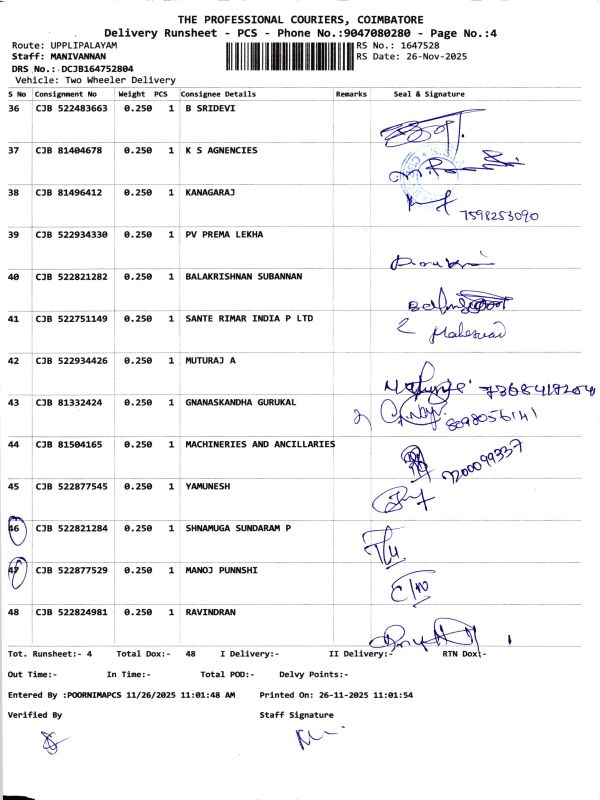 THE PROFESSIONAL COURIERS, COIMBATORE
Delivery Runsheet - PCS - Phone No.:9047080280 - Page No.:4
Route: UPPLIPALAYAM RS No.: 1647528
Staff: MANIVANNAN RS Date: 26-Nov-2025
DRS No.: DCJB164752804
Vehicle: Two Wheeler Delivery
S No Consignment No Weight PCS Consignee Details Remarks Seal & Signature
36 CJB 522483663 0.250 1 B SRIDEVI
37 CJB 81404678 0.250 1 K S AGNENCIES
38 CJB 81496412 0.250 1 KANAGARAJ
7598253090
39 CJB 522934330 0.250 1 PV PREMA LEKHA
40 CJB 522821282 0.250 1 BALAKRISHNAN SUBANNAN
41 CJB 522751149 0.250 1 SANTE RIMAR INDIA P LTD
42 CJB 522934426 0.250 1 MUTURAJ A
43 CJB 81332424 0.250 1 GNANASKANDHA GURUKAL
8098056141
44 CJB 81504165 0.250 1 MACHINERIES AND ANCILLARIES
7200099337
45 CJB 522877545 0.250 1 YAMUNESH
46 CJB 522821284 0.250 1 SHNAMUGA SUNDARAM P
47 CJB 522877529 0.250 1 MANOJ PUNNSHI
48 CJB 522824981 0.250 1 RAVINDRAN
Tot. Runsheet:- 4 Total Dox:- 48 I Delivery:- II Delivery:- RTN Dox:-
Out Time:- In Time:- Total POD:- Delvy Points:-
Entered By :POORNIMAPCS 11/26/2025 11:01:48 AM Printed On: 26-11-2025 11:01:54
Verified By Staff Signature